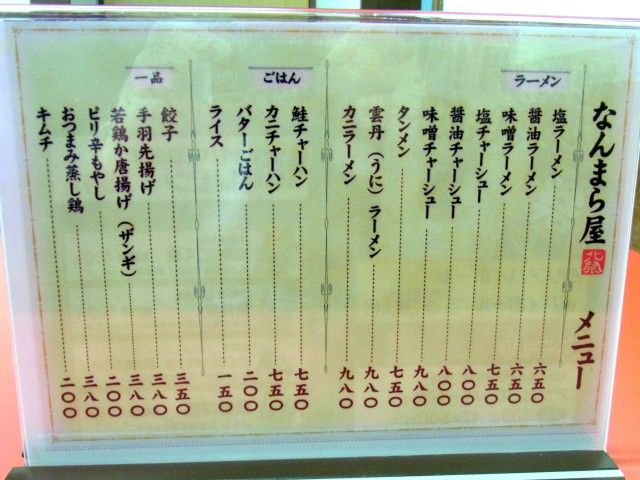 なんまら屋 メニュー
ラーメン
塩ラーメン 六五〇
醤油ラーメン 六五〇
味噌ラーメン 七五〇
塩チャーシュー 八〇〇
醤油チャーシュー 八〇〇
味噌チャーシュー 九八〇
タンメン 七五〇
雲丹（うに）ラーメン 九八〇
カニラーメン 九八〇
ごはん
鮭チャーハン 七五〇
カニチャーハン 七五〇
バターごはん 二〇〇
ライス 一五〇
一品
餃子 三五〇
手羽先揚げ 三八〇
若鶏か唐揚げ（ザンギ） 三八〇
ピリ辛もやし 二〇〇
おつまみ蒸し鶏 三八〇
キムチ 二〇〇